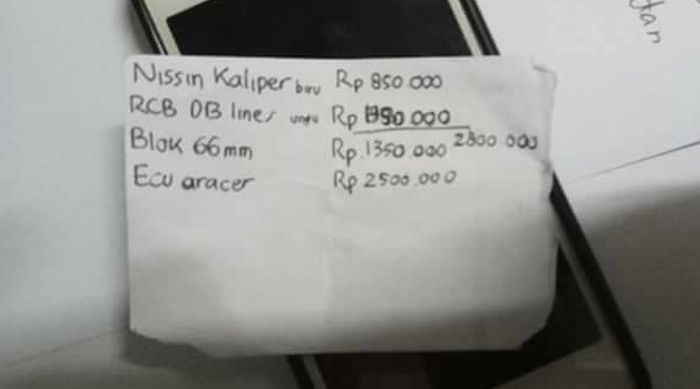 Nissin Kaliper biru Rp 850.000
RCB DB lines ungu Rp 950.000
2800 000
Blok 66mm Rp.1350.000
Ecu aracer Rp 2500.000